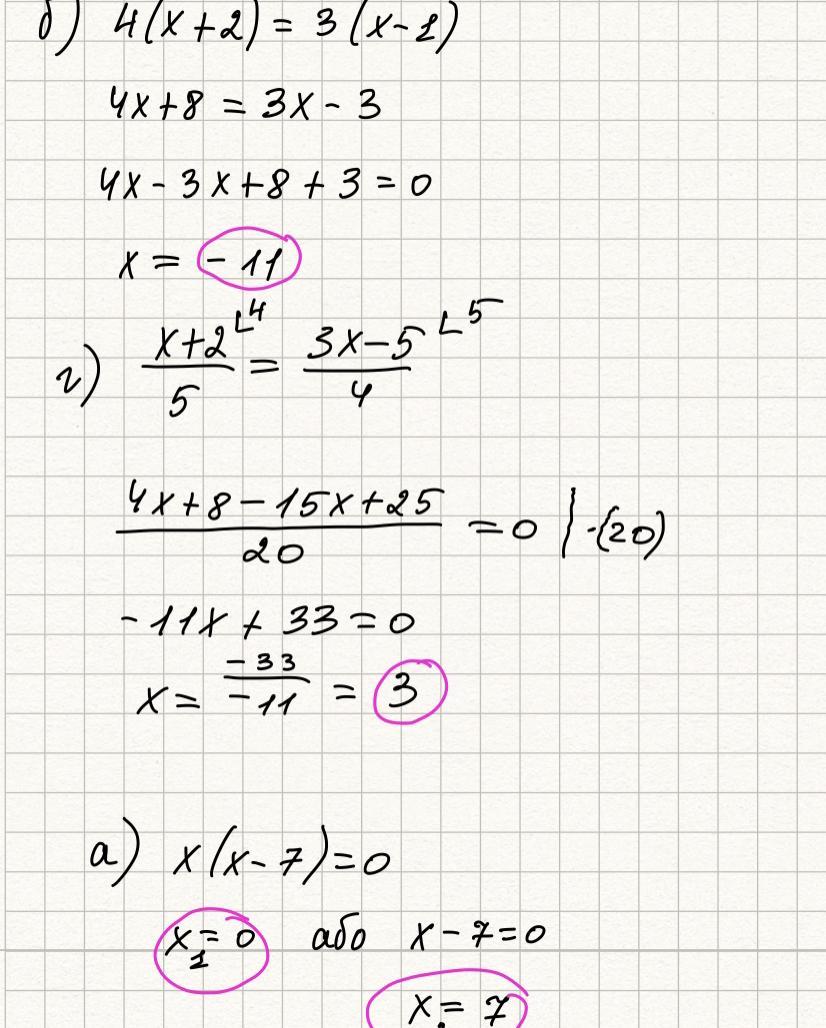 б) 4(x+2) = 3(x-1)
4x+8 = 3x - 3
4x - 3x + 8 + 3 = 0
x = -11
г) (x+2)/5 ∟4 = (3x-5)/4 ∟5
(4x+8-15x+25)/20 = 0 | ·(20)
-11x + 33 = 0
x = -33/-11 = 3
а) x(x-7)=0
x₁ = 0 або x - 7 = 0
x = 7